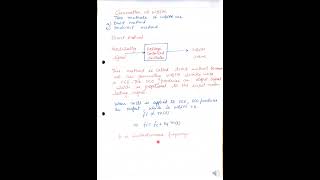 Generation of WBFM
Two methods of WBFM are
a) Direct method
b) Indirect method
Direct Method
Modulating
signal
Voltage
Controlled
Oscillator
WBFM
wave
This method is called direct method because
we are generating WBFM directly using
a VCO. The VCO produces an output signal
which is proportional to the input modu-
lating signal.
When m(t) is applied to VCO, VCO produces
an output, which is WBFM ie
fi α m(t)
⇒ fi = fc + kf m(t)
fi = instantaneous frequency